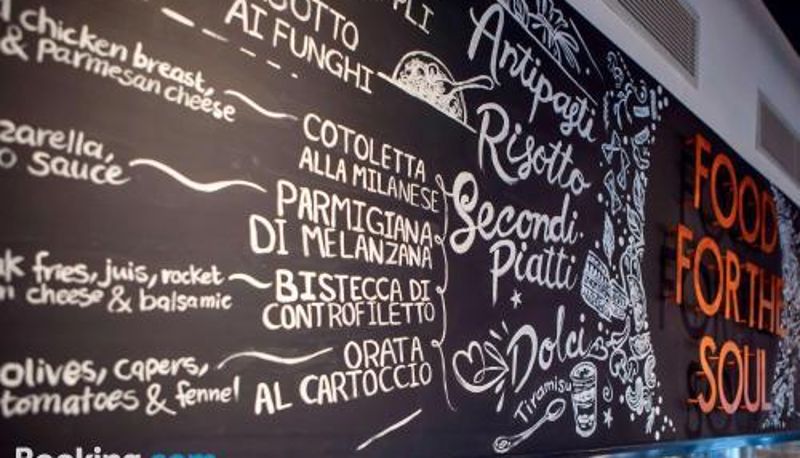 chicken breast,
& Parmesan cheese
sauce
fries, juis, rocket
cheese & balsamic
olives, capers,
tomatoes & fennel
AI FUNGHI
COTOLETTA
ALLA MILANESE
PARMIGIANA
DI MELANZANA
BISTECCA DI
CONTROFILETTO
ORATA
AL CARTOCCIO
Antipasti
Risotto
Secondi
Piatti
Dolci
Tiramisu
FOOD
FOR THE
SOUL
Booking.com